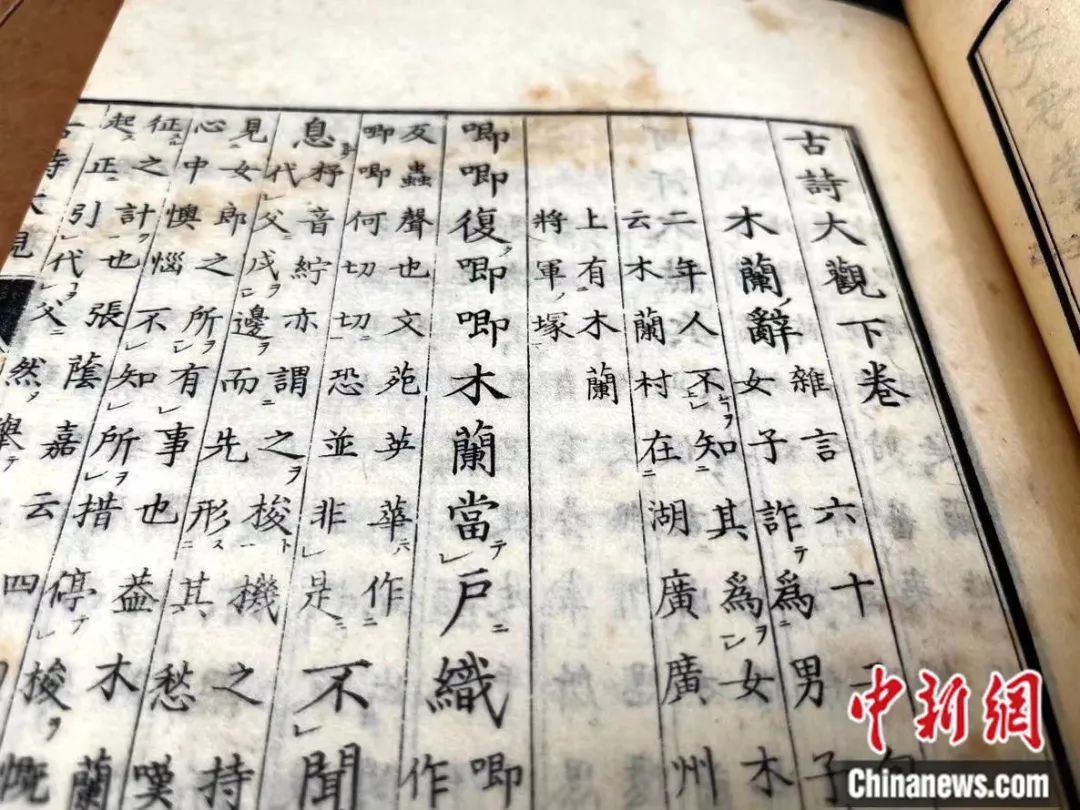 古詩大觀下卷
木蘭辭
雜言六十二句
女子詐爲男子
二年人不知其爲女木
云木蘭村在湖廣廣州
上有木蘭
將軍塚
唧唧復唧唧木蘭當戶織
唧
作
蟲聲也文苑英華作
唧唧何切切恐並非是
不聞
息
杼音紵亦謂之梭機之持
代父戍邊而先形其愁嘆
見女郎之所有事也蓋木蘭
心中懊惱不知所措停梭慨
征之計也張蔭嘉云四
起正引代父然
詩大
中新網
Chinanews.com